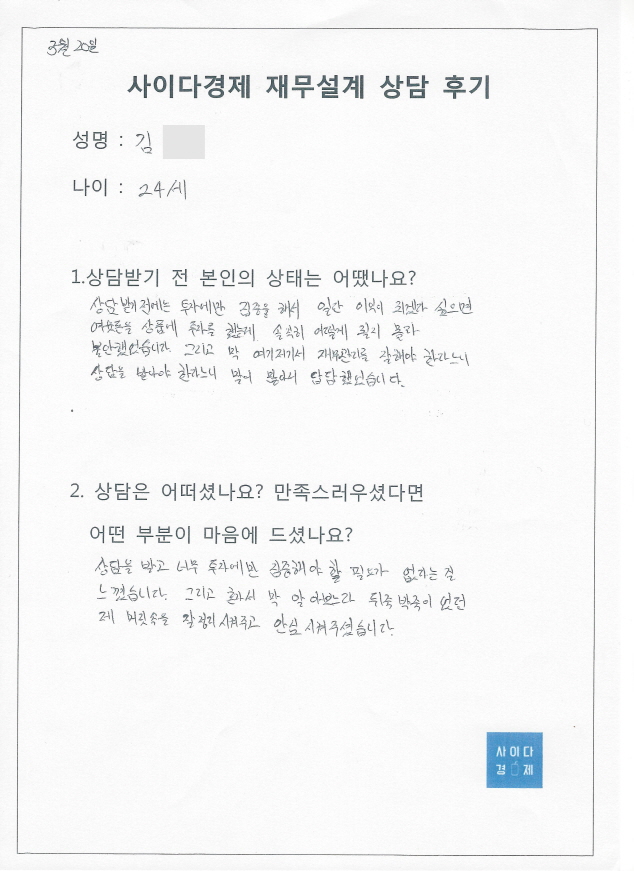 3월 20일
사이다경제 재무설계 상담 후기
성명 : 김
나이 : 24세
1.상담받기 전 본인의 상태는 어땠나요?
상담받기 전에는 투자에만 집중을 해서 일단 이익이 되겠다 싶으면
여유돈을 상품에 투자를 했는데 솔직히 어떻게 될지 몰라
불안했었습니다. 그리고 막 여기저기서 재무관리를 잘해야 한다느니
상담을 받아야 한다느니 말이 많아서 답답했었습니다.
2. 상담은 어떠셨나요? 만족스러우셨다면
어떤 부분이 마음에 드셨나요?
상담을 받고 너무 투자에만 집중해야 할 필요가 없다는 걸
느꼈습니다. 그리고 혼자서 막 알아보느라 뒤죽박죽이 었던
제 머릿속을 잘 정리시켜주고 안심시켜주셨습니다.
사이다
경제